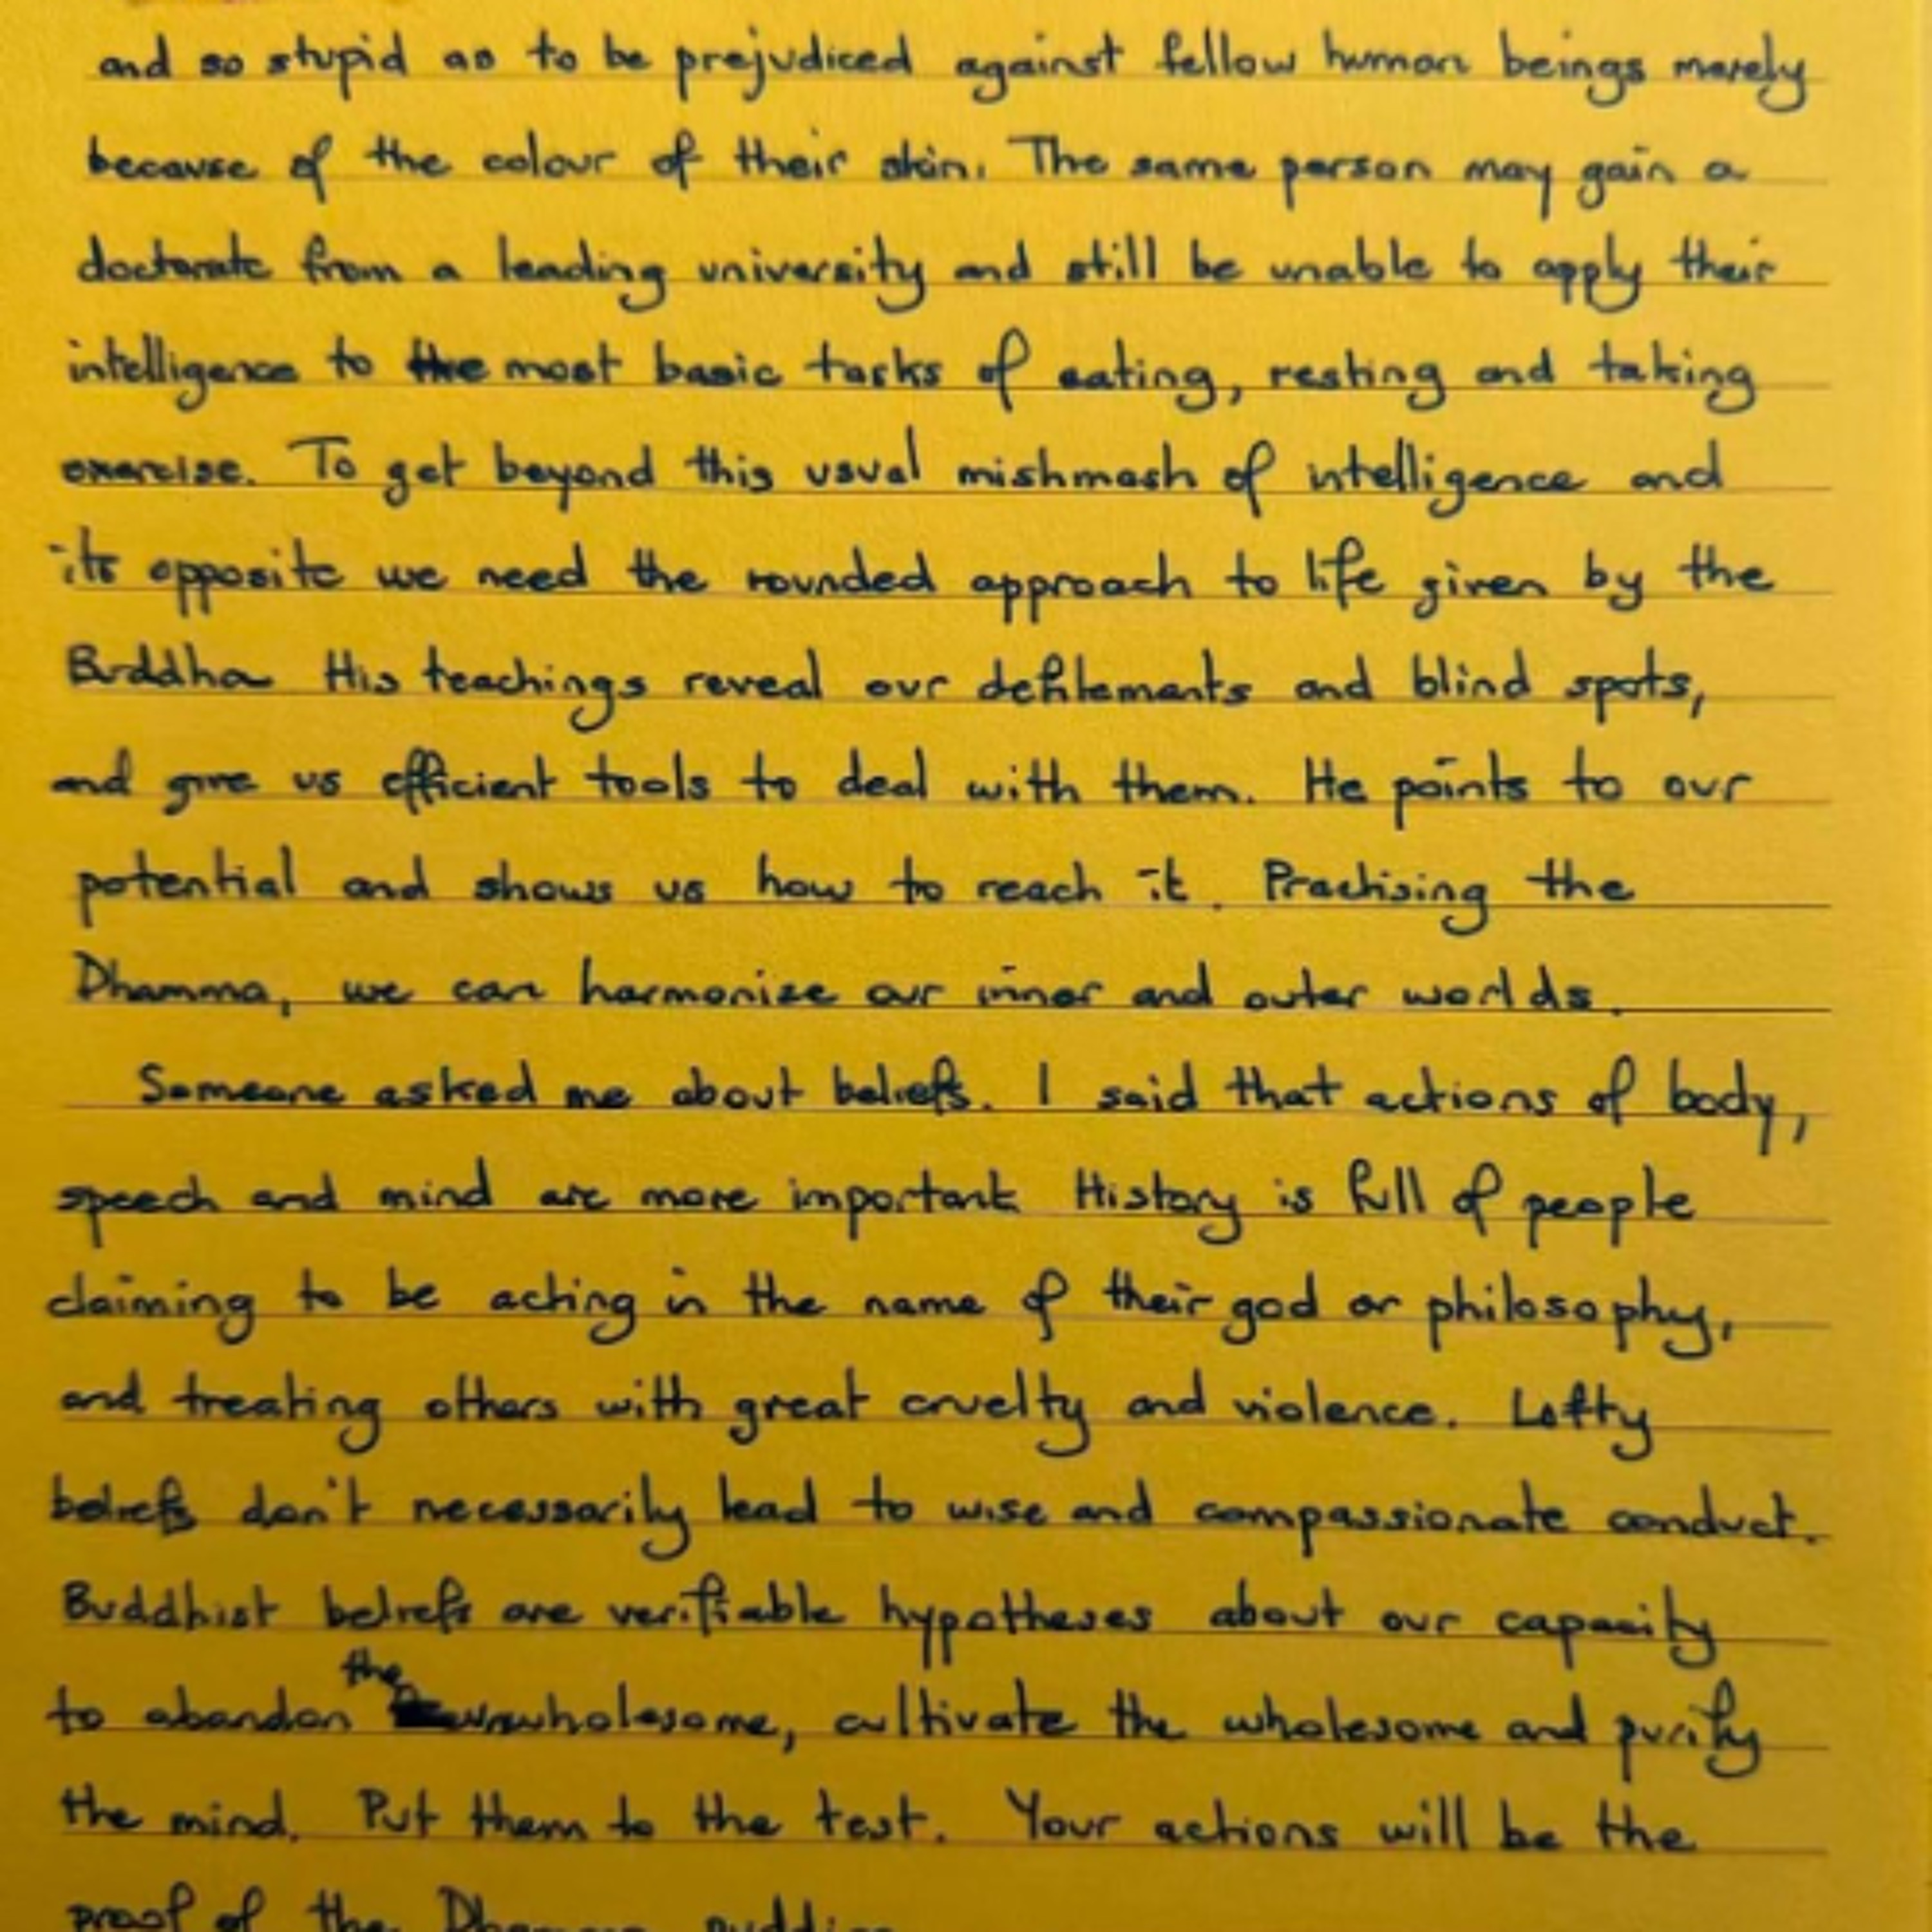 and so stupid as to be prejudiced against fellow human beings merely
because of the colour of their skin. The same person may gain a
doctorate from a leading university and still be unable to apply their
intelligence to the most basic tasks of eating, resting and taking
exercise. To get beyond this usual mishmash of intelligence and
its opposite we need the rounded approach to life given by the
Buddha His teachings reveal our defilements and blind spots,
and give us efficient tools to deal with them. He points to our
potential and shows us how to reach it. Practising the
Dhamma, we can harmonise our inner and outer worlds.
Someone asked me about beliefs. I said that actions of body,
speech and mind are more important History is full of people
claiming to be acting in the name of their god or philosophy,
and treating others with great cruelty and violence. Lofty
beliefs don't necessarily lead to wise and compassionate conduct.
Buddhist beliefs are verifiable hypotheses about our capacity
to abandon the unwholesome, cultivate the wholesome and purify
the mind. Put them to the test. Your actions will be the
proof of the Dhamma pudding